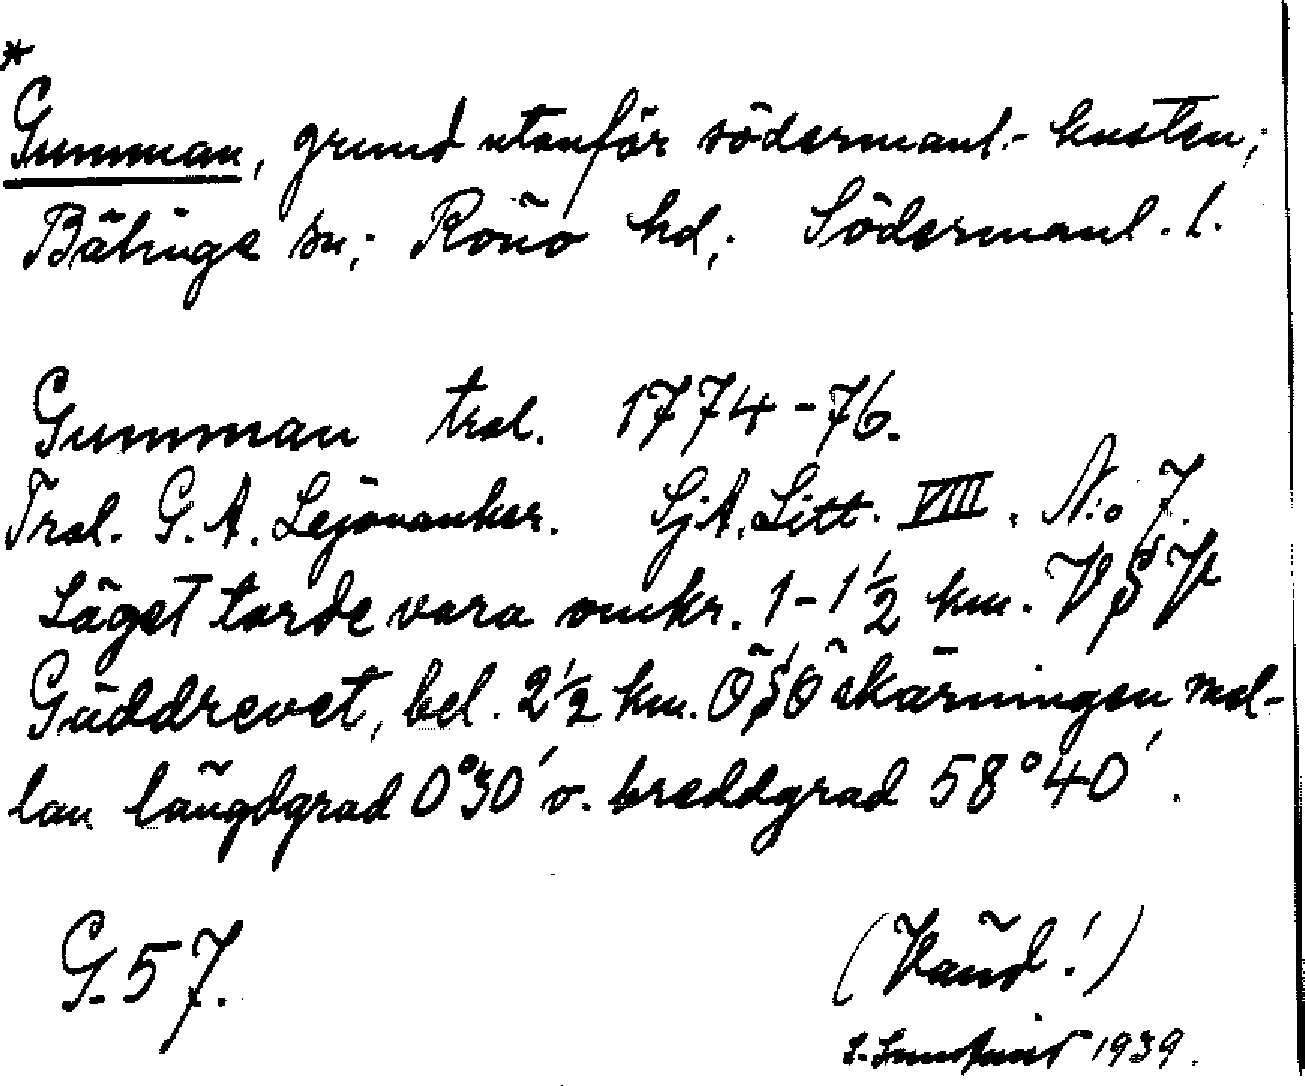 *
Gumman, grund utanför södermanl. kusten;
Bälinge sn; Rönö hd; Södermanl. l.
Gumman trol. 1774-76.
Trol. G. A. Lejonanker. SjA. Litt. VIII. N:o 7.
Läget torde vara omkr. 1-1½ km. V§V
Gäddrevet, bel. 2½ km. Ö§Ö skärningen mel-
lan längdgrad 0°30' o. breddgrad 58°40'.
G. 57.
(Vänd!)
1939.